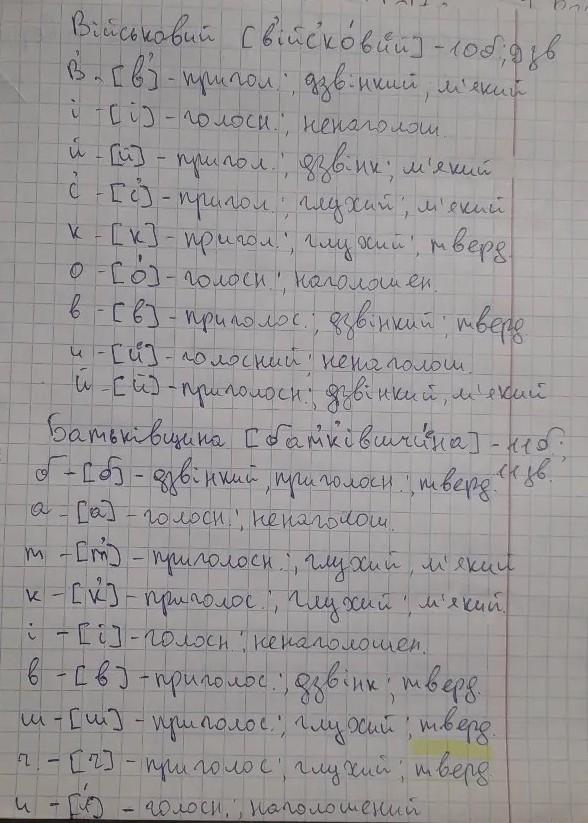 Військовий [в'ійс'ко́вий] - 10б; 9 зв
В - [в'] - пригол.; дзвінкий, м'який
і - [і] - голосн.; ненаголош.
й - [й] - пригол.; дзвінк; м'який
с - [с'] - пригол.; глухий; м'який
к - [к] - пригол.; глухий; тверд.
о - [о́] - голосн.; наголошен.
в - [в] - приголос.; дзвінкий; тверд
и - [иᵉ] - голосний; ненаголош.
й - [й] - приголосн.; дзвінкий, м'який
Батьківщина [бат'к'івшчи́на] - 11б;
б - [б] - дзвінкий, приголосн.; тверд. 11 зв.
а - [а] - голосн.; ненаголош.
т - [т'] - приголосн.; глухий, м'який
к - [к'] - приголос.; глухий; м'який.
і - [і] - голосн; ненаголошен.
в - [в] - приголос.; дзвінк; тверд.
ш - [ш] - приголос.; глухий; тверд.
ч - [ч] - приголос; глухий; тверд
и - [и́] - голосн.; наголошений